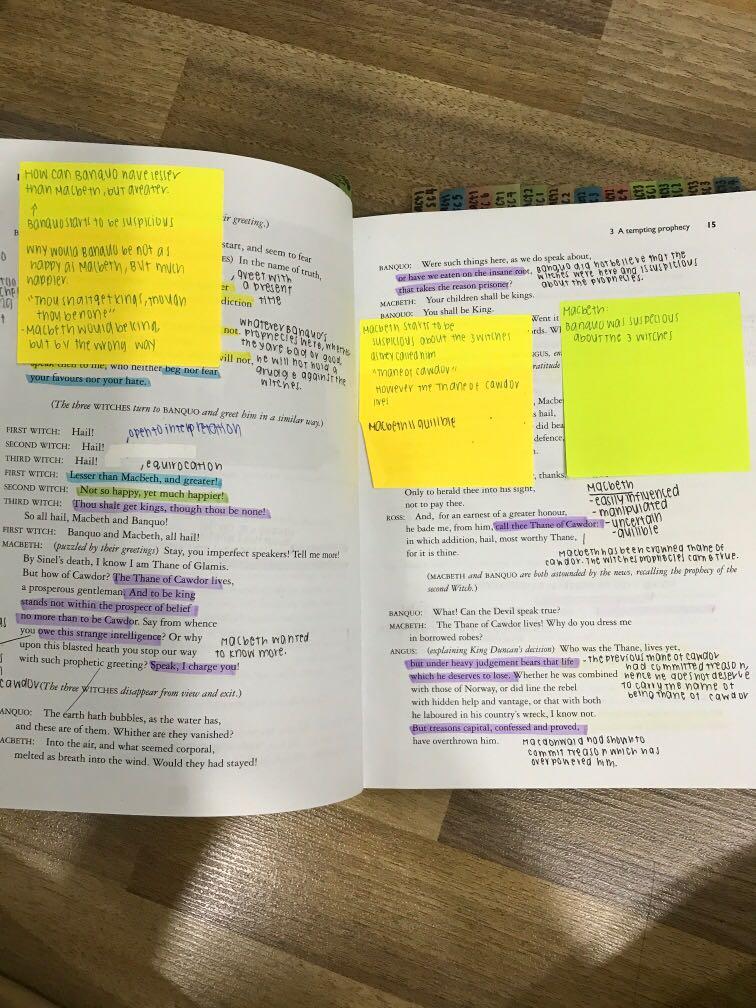 HOW CAN BANQUO HAVE LESSER
than MACBETH, BUT GREATER.
BANQUO STARTS TO BE SUSPICIOUS
WHY WOULD BANQUO BE NOT AS
HAPPY AS MACBETH, BUT MUCH
HAPPIER.
"THOU SHALT GET KINGS, THOUGH
THOU BE NONE"
-MACBETH WOULD BE KING
BUT BY THE WRONG WAY
ir greeting.)
start, and seem to fear
ES) In the name of truth,
, greet with
a present
diction time
whatever BANQUO'S
not. prophecies were, whether
they are bad or good,
will not, he will not hold a
grudge against the
witches.
speak then to me, who neither beg nor fear
your favours nor your hate.
(The three WITCHES turn to BANQUO and greet him in a similar way.)
FIRST WITCH: Hail! , open to interpretation
SECOND WITCH: Hail!
THIRD WITCH: Hail! , equivocation
FIRST WITCH: Lesser than Macbeth, and greater!
SECOND WITCH: Not so happy, yet much happier!
THIRD WITCH: Thou shalt get kings, though thou be none!
So all hail, Macbeth and Banquo!
FIRST WITCH: Banquo and Macbeth, all hail!
MACBETH: (puzzled by their greetings) Stay, you imperfect speakers! Tell me more!
By Sinel's death, I know I am Thane of Glamis.
But how of Cawdor? The Thane of Cawdor lives,
a prosperous gentleman. And to be king
stands not within the prospect of belief
no more than to be Cawdor. Say from whence
you owe this strange intelligence? Or why
upon this blasted heath you stop our way
with such prophetic greeting? Speak, I charge you!
Macbeth wanted
to know more.
cawdor
(The three WITCHES disappear from view and exit.)
ANQUO: The earth hath bubbles, as the water has,
and these are of them. Whither are they vanished?
ACBETH: Into the air, and what seemed corporal,
melted as breath into the wind. Would they had stayed!
3 A tempting prophecy 15
BANQUO: Were such things here, as we do speak about,
or have we eaten on the insane root,
that takes the reason prisoner?
Banquo did not believe that the
witches were here and is suspicious
about the prophecies.
MACBETH: Your children shall be kings.
BANQUO: You shall be King.
Went it
MACBETH STARTS TO BE
SUSPICIOUS ABOUT THE 3 WITCHES
as they called him
"THANE OF CAWDOR"
HOWEVER THE THANE OF CAWDOR
LIVE!
MACBETH IS GULLIBLE
MACBETH:
BANQUO WAS SUSPECIOUS
ABOUT THE 3 WITCHES
, thanks.
Only to herald thee into his sight,
not to pay thee.
ROSS: And, for an earnest of a greater honour,
he bade me, from him, call thee Thane of Cawdor:
in which addition, hail, most worthy Thane,
for it is thine.
Macbeth
-easily influenced
- manipulated
-uncertain
-gullible
Macbeth has been crowned thane of
cawdor. the witches prophecies came true.
(MACBETH and BANQUO are both astounded by the news, recalling the prophecy of the
second Witch.)
BANQUO: What! Can the Devil speak true?
MACBETH: The Thane of Cawdor lives! Why do you dress me
in borrowed robes?
ANGUS: (explaining King Duncan's decision) Who was the Thane, lives yet,
but under heavy judgement bears that life
which he deserves to lose. Whether he was combined
with those of Norway, or did line the rebel
with hidden help and vantage, or that with both
he laboured in his country's wreck, I know not.
But treasons capital, confessed and proved,
have overthrown him.
-the previous thane of cawdor
had committed treason,
hence he does not deserve
to carry the name of
being thane of cawdor
Macdonwald had shown to
commit treason which has
overpowered him.